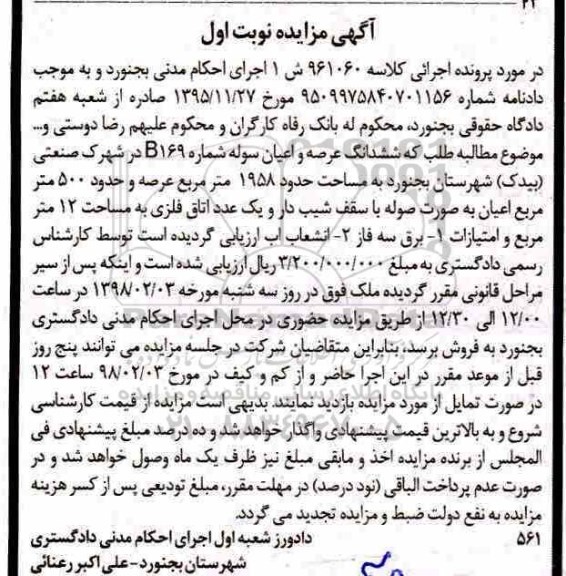 آگهی مزایده نوبت اول
در مورد پرونده اجرائی کلاسه ۹۶۱۰۶۰ ش ۱ اجرای احکام مدنی بجنورد و به موجب
دادنامه شماره ۹۵۰۹۹۷۵۸۴۰۷۰۱۱۵۶ مورخ ۱۳۹۵/۱۱/۲۷ صادره از شعبه هفتم
دادگاه حقوقی بجنورد، محکوم له بانک رفاه کارگران و محکوم علیهم رضا دوستی و...
موضوع مطالبه طلب که ششدانگ عرصه و اعیان سوله شماره B۱۶۹ در شهرک صنعتی
(بیدک) شهرستان بجنورد به مساحت حدود ۱۹۵۸ متر مربع عرصه و حدود ۵۰۰ متر
مربع اعیان به صورت صوله با سقف شیب دار و یک عدد اتاق فلزی به مساحت ۱۲ متر
مربع و امتیازات ۱- برق سه فاز ۲- انشعاب اب ارزیابی گردیده است توسط کارشناس
رسمی دادگستری به مبلغ ۳/۲۰۰/۰۰۰/۰۰۰ ریال ارزیابی شده است و اینکه پس از سیر
مراحل قانونی مقرر گردیده ملک فوق در روز سه شنبه مورخه ۱۳۹۸/۰۲/۰۳ در ساعت
۱۲/۰۰ الی ۱۲/۳۰ از طریق مزایده حضوری در محل اجرای احکام مدنی دادگستری
بجنورد به فروش برسد، بنابراین متقاضیان شرکت در جلسه مزایده می توانند پنج روز
قبل از موعد مقرر در این اجرا حاضر و از کم و کیف در مورخ ۹۸/۰۲/۰۳ ساعت ۱۲
در صورت تمایل از مورد مزایده بازدید نمایند. بدیهی است مزایده از قیمت کارشناسی
شروع و به بالاترین قیمت پیشنهادی واگذار خواهد شد و ده درصد مبلغ پیشنهادی فی
المجلس از برنده مزایده اخذ و مابقی مبلغ نیز ظرف یک ماه وصول خواهد شد و در
صورت عدم پرداخت الباقی (نود درصد) در مهلت مقرر، مبلغ تودیعی پس از کسر هزینه
مزایده به نفع دولت ضبط و مزایده تجدید می گردد.
۵۶۱ دادورز شعبه اول اجرای احکام مدنی دادگستری
شهرستان بجنورد-علی اکبر رعنائی